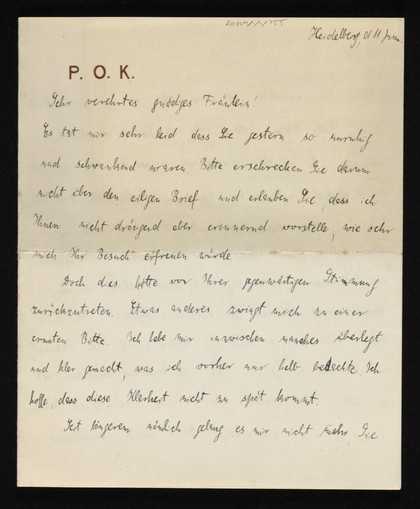 Heidelberg, d 11 Juni
P. O. K.
Sehr verehrtes gnädiges Fräulein!
Es tat mir sehr leid dass Sie gestern so unruhig
und schwankend waren Bitte erschrecken Sie darum
nicht über den eiligen Brief und erlauben Sie dass ich
Ihnen nicht drängend aber erinnernd vorstelle, wie sehr
mich Ihr Besuch erfreuen würde
Doch dies hätte vor Ihrer gegenwärtigen Stimmung
zurückzutreten. Etwas anderes zwingt mich zu einer
ernsten Bitte. Ich habe mir inzwischen manches überlegt
und klar gemacht, was ich vorher nur halb bedachte. Ich
hoffe, dass diese Klarheit nicht zu spät kommt.
Seit längerem nämlich gelang es mir nicht mehr, Sie